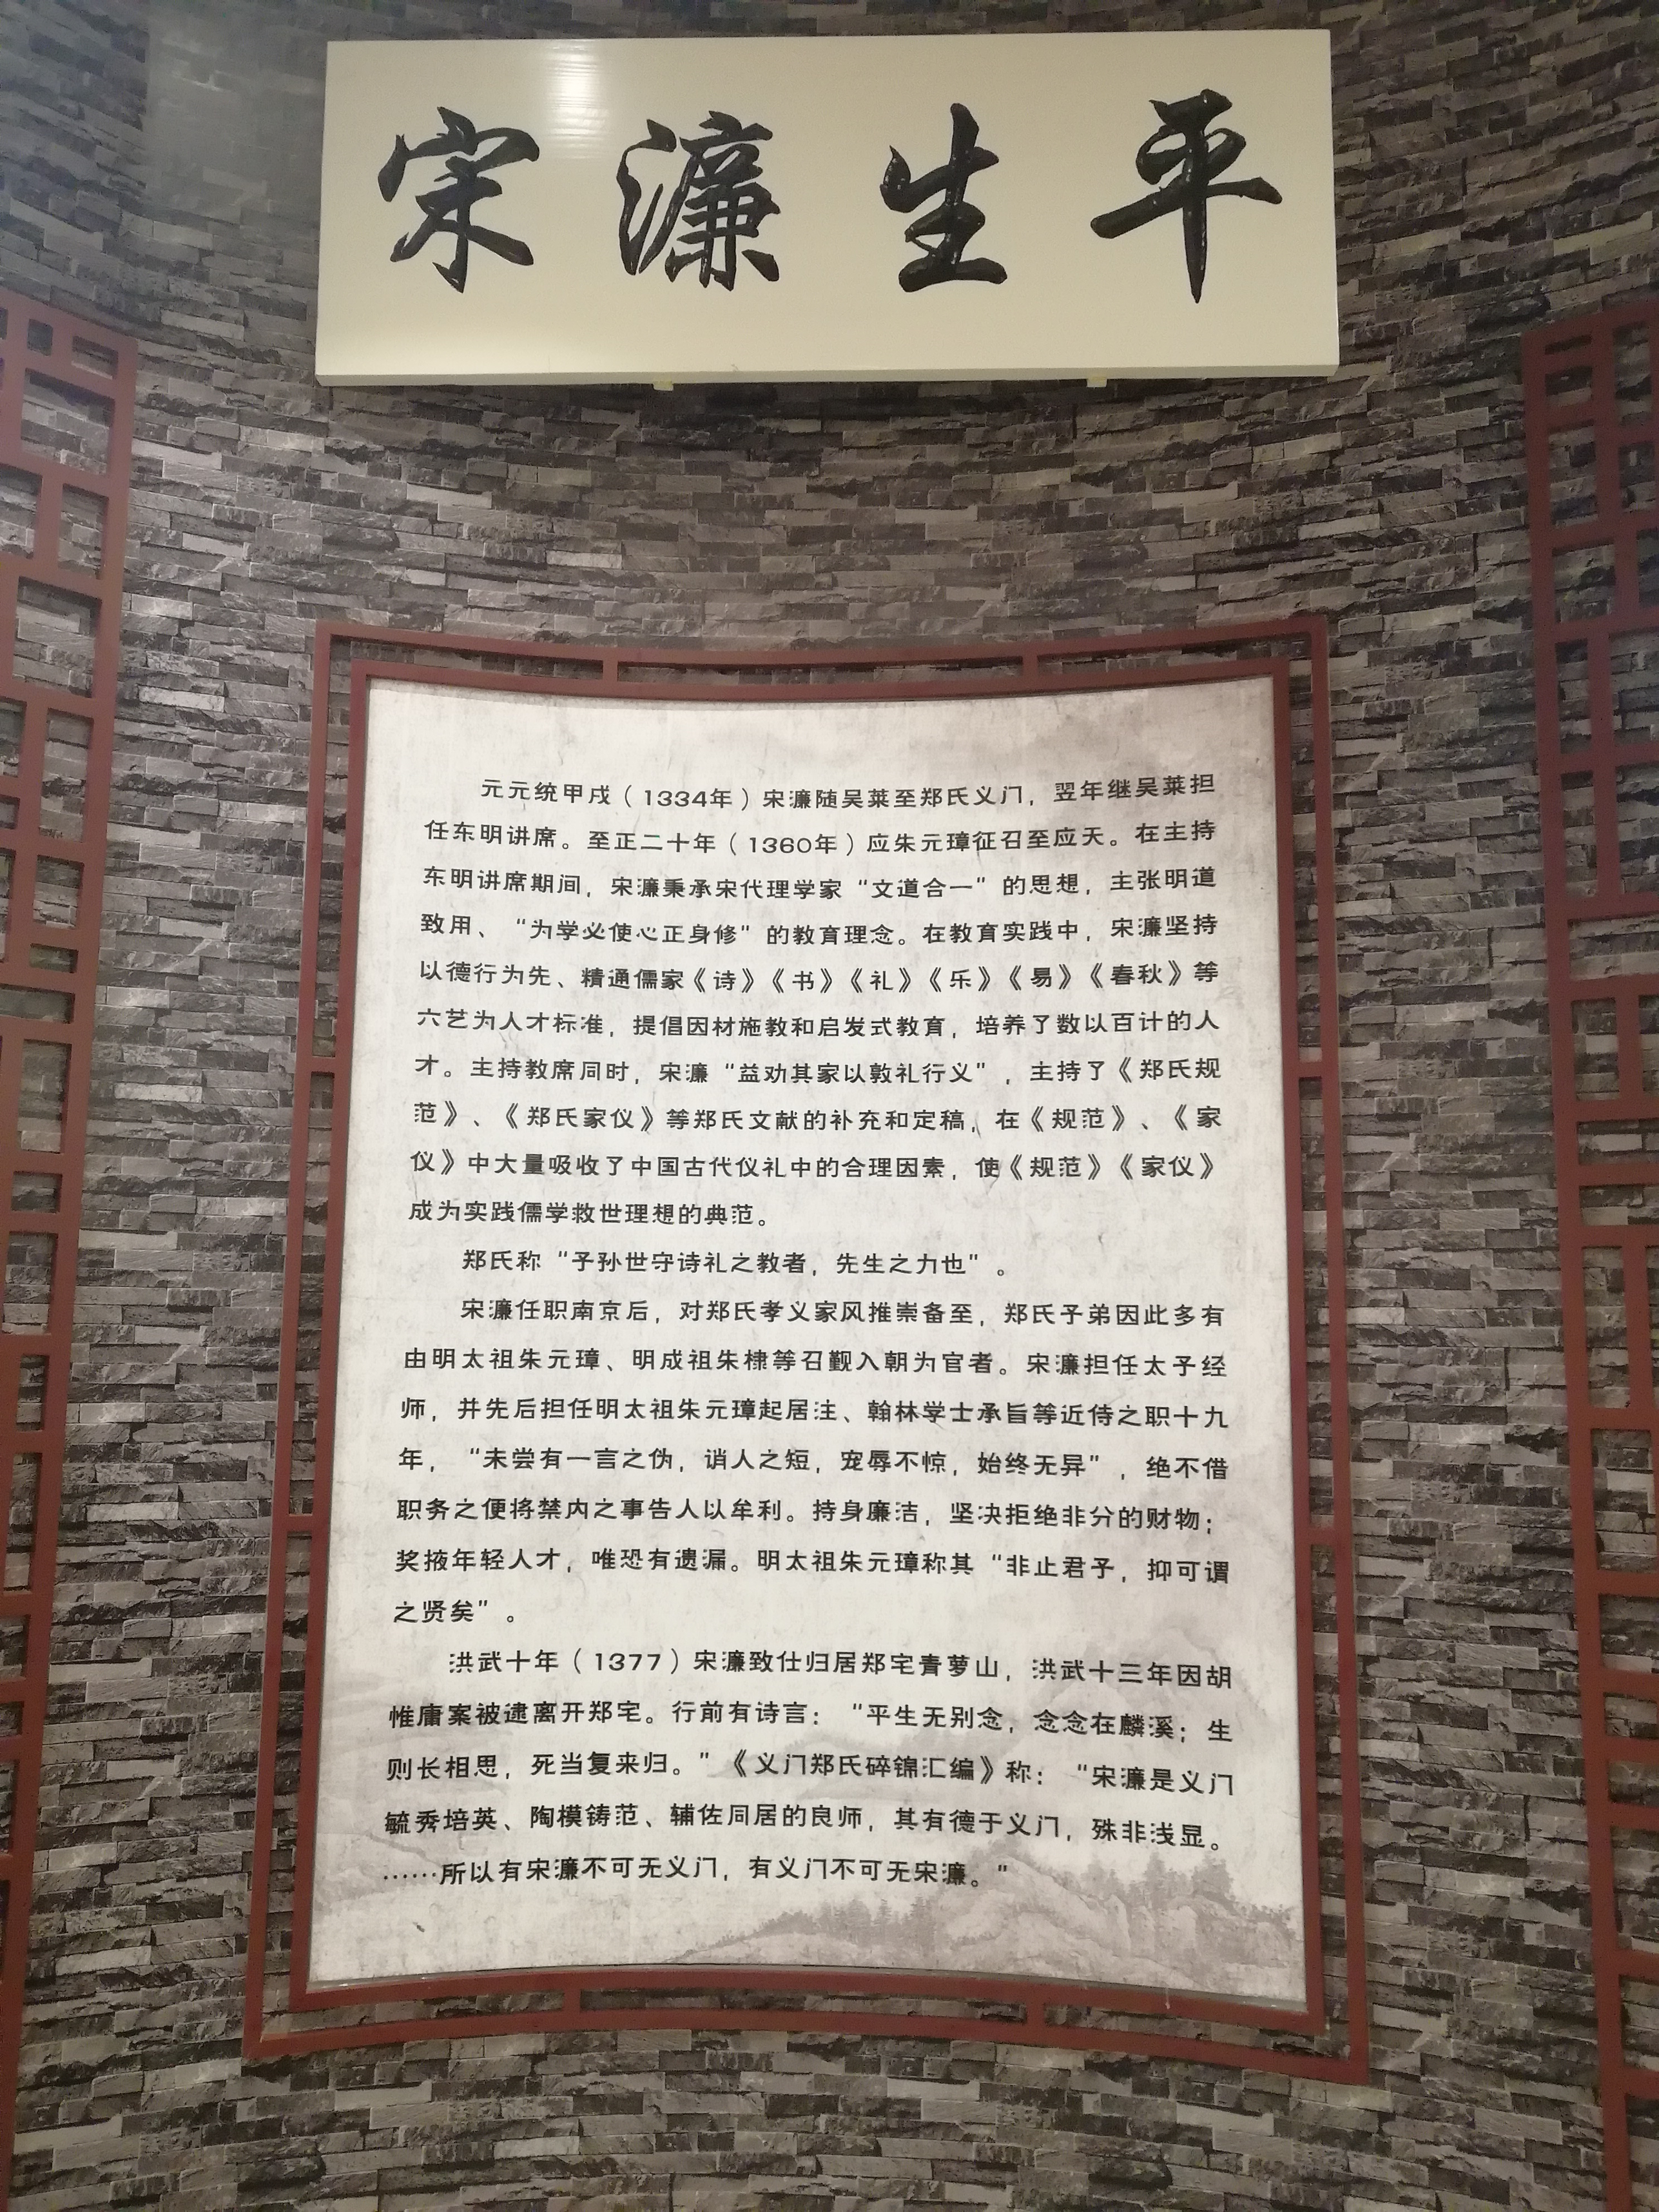 宋濂生平
元元统甲戌（1334年）宋濂随吴莱至郑氏义门，翌年继吴莱担
任东明讲席。至正二十年（1360年）应朱元璋征召至应天。在主持
东明讲席期间，宋濂秉承宋代理学家“文道合一”的思想，主张明道
致用、“为学必使心正身修”的教育理念。在教育实践中，宋濂坚持
以德行为先、精通儒家《诗》《书》《礼》《乐》《易》《春秋》等
六艺为人才标准，提倡因材施教和启发式教育，培养了数以百计的人
才。主持教席同时，宋濂“益劝其家以敦礼行义”，主持了《郑氏规
范》、《郑氏家仪》等郑氏文献的补充和定稿，在《规范》、《家
仪》中大量吸收了中国古代仪礼中的合理因素，使《规范》《家仪》
成为实践儒学救世理想的典范。
郑氏称“子孙世守诗礼之教者，先生之力也”。
宋濂任职南京后，对郑氏孝义家风推崇备至，郑氏子弟因此多有
由明太祖朱元璋、明成祖朱棣等召觐入朝为官者。宋濂担任太子经
师，并先后担任明太祖朱元璋起居注、翰林学士承旨等近侍之职十九
年，“未尝有一言之伪，诮人之短，宠辱不惊，始终无异”，绝不借
职务之便将禁内之事告人以牟利。持身廉洁，坚决拒绝非分的财物；
奖掖年轻人才，唯恐有遗漏。明太祖朱元璋称其“非止君子，抑可谓
之贤矣”。
洪武十年（1377）宋濂致仕归居郑宅青萝山，洪武十三年因胡
惟庸案被逮离开郑宅。行前有诗言：“平生无别念，念念在麟溪；生
则长相思，死当复来归。”《义门郑氏碎锦汇编》称：“宋濂是义门
毓秀培英、陶模铸范、辅佐同居的良师，其有德于义门，殊非浅显。
……所以有宋濂不可无义门，有义门不可无宋濂。”